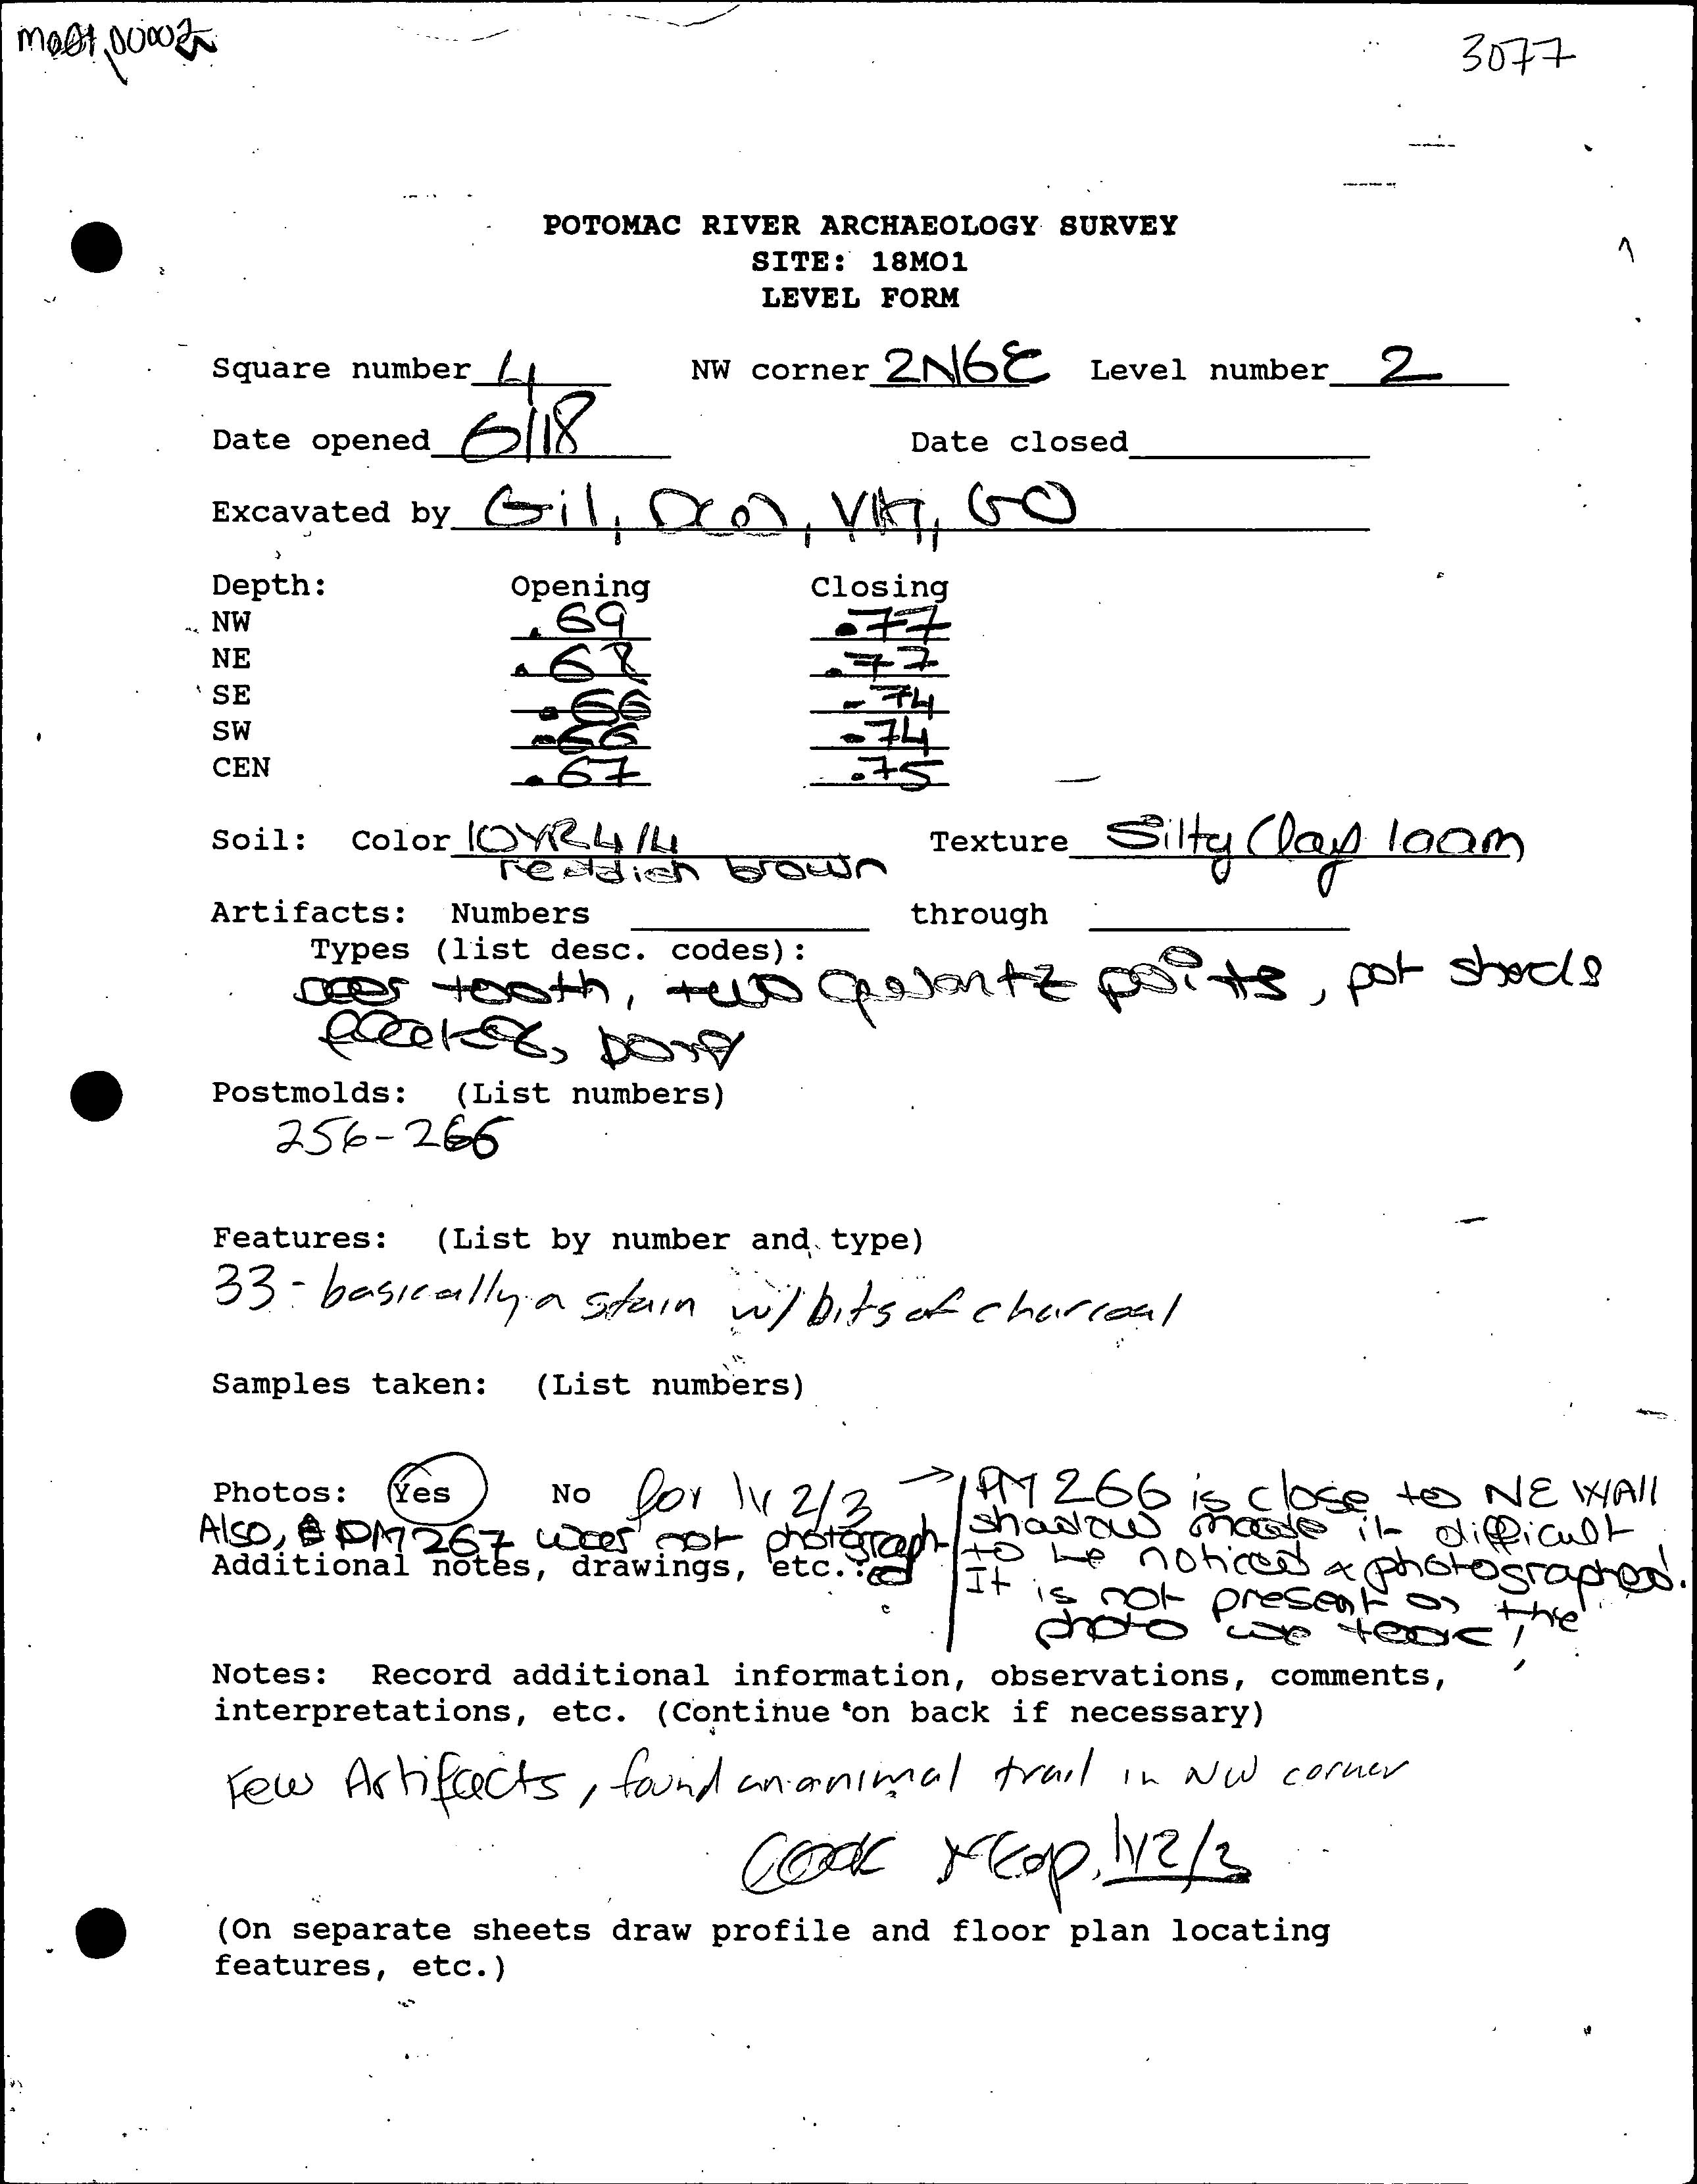 3077
POTOMAC RIVER ARCHAEOLOGY SURVEY
SITE: 18MO1
LEVEL FORM
Square number 4 NW corner 2N6E Level number 2
Date opened 6/18 Date closed
Excavated by Gil, GO
Depth: Opening Closing
NW .69 .77
NE .68 .77
SE .66 .74
SW .66 .74
CEN .67 .75
Soil: Color 10YR4/4 Texture Silty Clay loam
reddish brown
Artifacts: Numbers through
Types (list desc. codes):
deer tooth, two quartz points, pot sherds
flakes, bone
Postmolds: (List numbers)
256-266
Features: (List by number and type)
33 - basically a stain w/ bits of charcoal
Samples taken: (List numbers)
Photos: Yes No for lv 2/3 → PM 266 is close to NE WAll
shadow made it difficult
to be noticed & photographed.
It is not present on the
photo we took,
Also, PM 267 was not photographed
Additional notes, drawings, etc.:
Notes: Record additional information, observations, comments,
interpretations, etc. (Continue on back if necessary)
Few Artifacts, found an animal trail in NW corner
lv 2/3
(On separate sheets draw profile and floor plan locating
features, etc.)